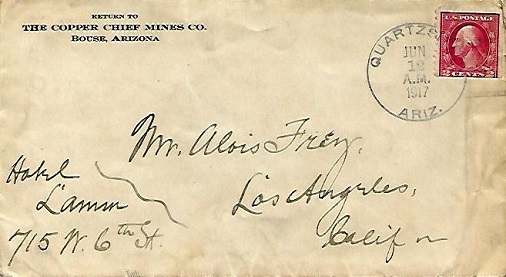 RETURN TO
THE COPPER CHIEF MINES CO.
BOUSE, ARIZONA
QUARTZS
JUN
12
A.M.
1917
ARIZ.
U.S. POSTAGE
2 CENTS 2
Mr. Alois Frey,
Los Angeles,
Calif
Hotel
Lamm
715 W. 6th St.